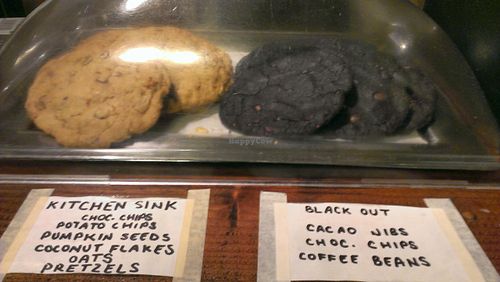 HappyCow
KITCHEN SINK
CHOC. CHIPS
POTATO CHIPS
PUMPKIN SEEDS
COCONUT FLAKES
OATS
PRETZELS
BLACK OUT
CACAO NIBS
CHOC. CHIPS
COFFEE BEANS